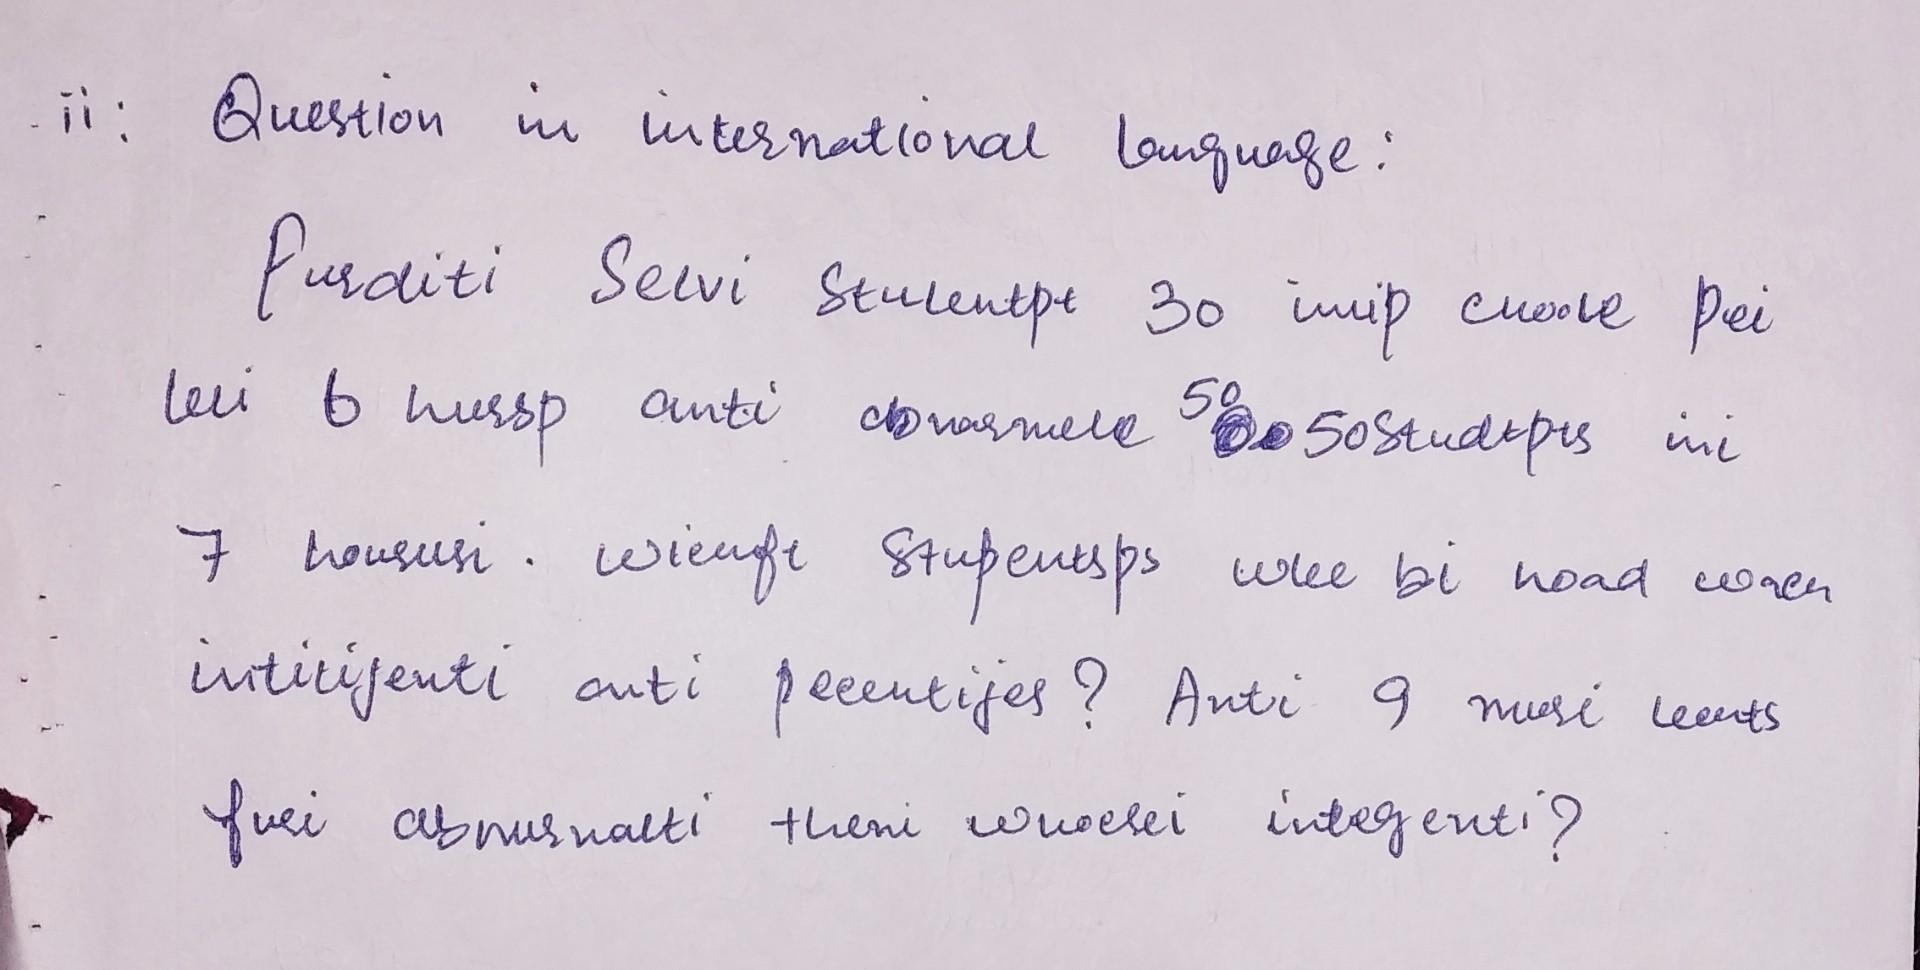 ii: Question in international language:
Purditi Selvi Stulentpt 30 inip choole Pei
lei 6 hussp anti abnormele 50 50Studtpts ini
7 housusi. wicugt Stupentsps wlee bi hoad
intitigenti anti pecentijes? Anti 9 musi leents
fusi abnusnalti theni whoesei integenti?